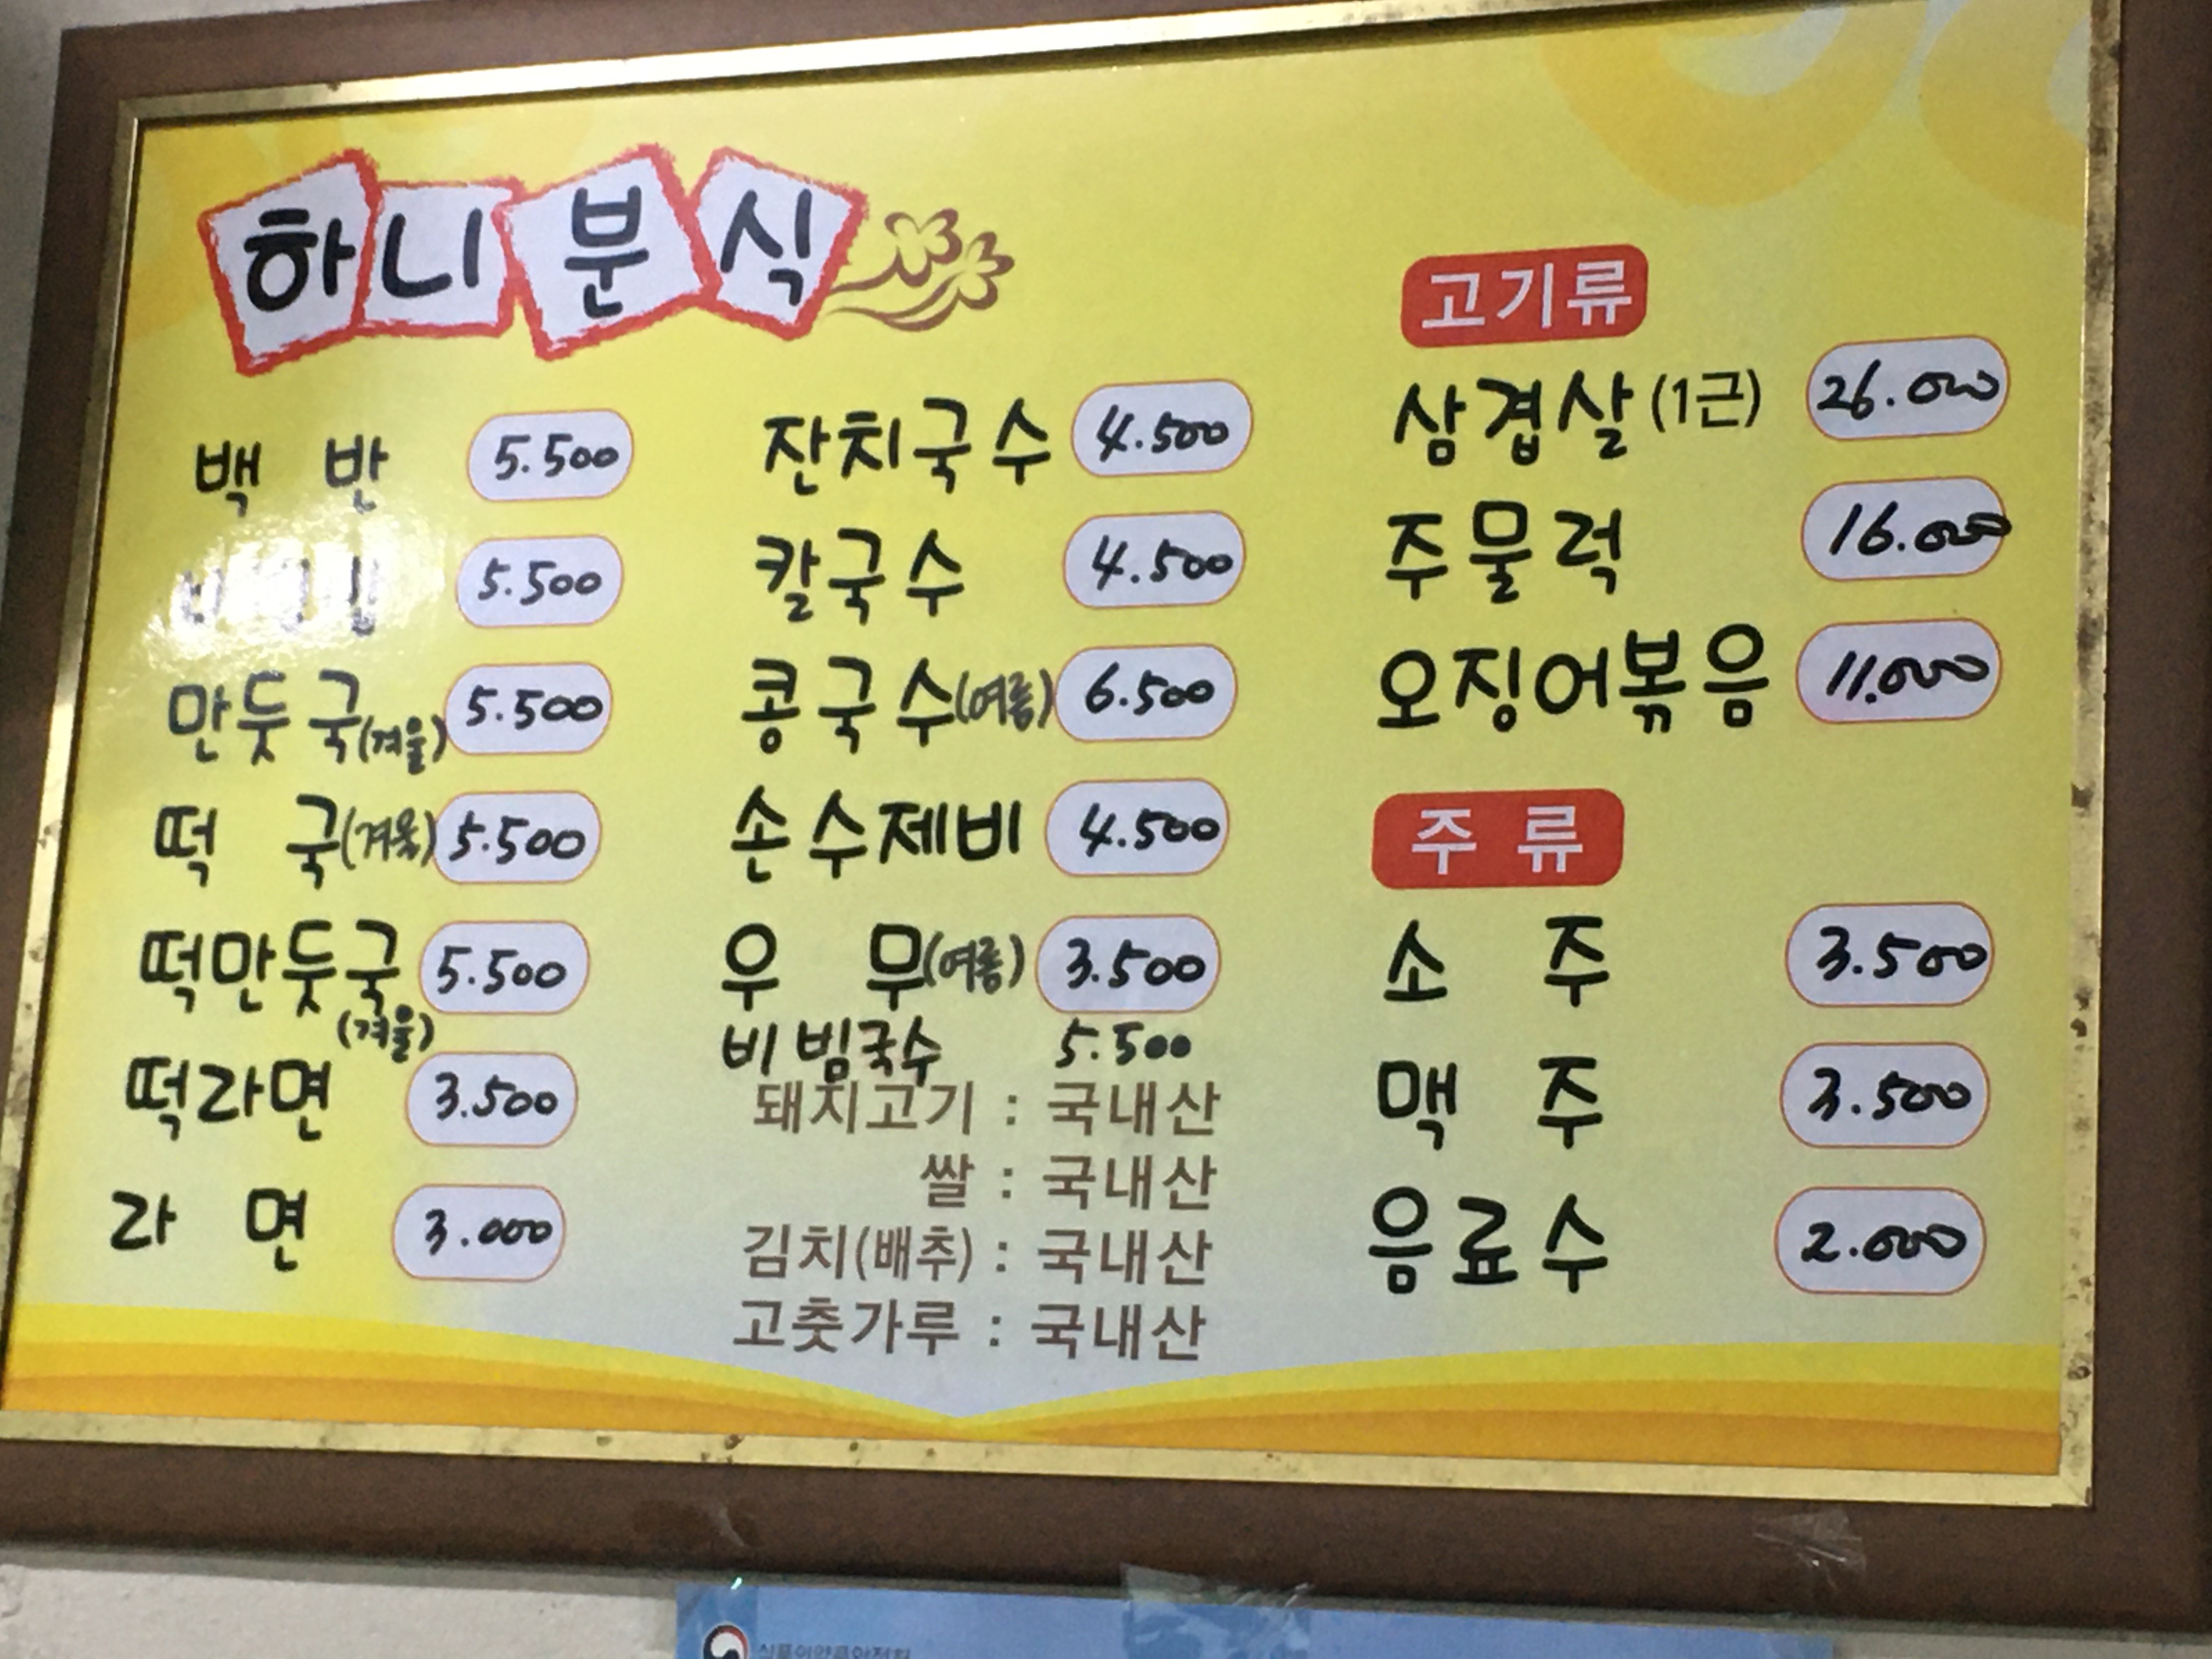 하니분식
백 반 5.500
5.500
만둣국(겨울) 5.500
떡 국(겨울) 5.500
떡만둣국(겨울) 5.500
떡라면 3.500
라 면 3.000
잔치국수 4.500
칼국수 4.500
콩국수(여름) 6.500
손수제비 4.500
우 무(여름) 3.500
비빔국수 5.500
돼지고기 : 국내산
쌀 : 국내산
김치(배추) : 국내산
고춧가루 : 국내산
고기류
삼겹살(1근) 26.000
주물럭 16.000
오징어볶음 11.000
주 류
소 주 3.500
맥 주 3.500
음료수 2.000